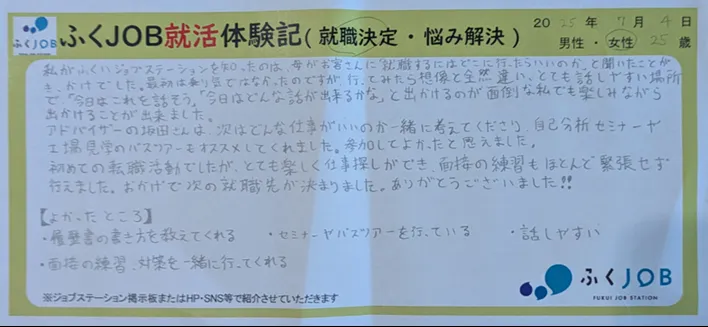 ふくJOB
ふくJOB就活体験記(就職決定・悩み解決)
2025年7月4日
男性・女性 25歳
私がふくいジョブステーションを知ったのは、母がお客さんに「就職するにはどこに行ったらいいのか」と聞いたことが
きっかけでした。最初は乗り気ではなかったのですが、行ってみたら想像と全然違い、とても話しやすい場所
で「今日はこれを話そう」「今日はどんな話が出来るかな」と出かけるのが面倒な私でも楽しみながら
出かけることが出来ました。
アドバイザーの坂田さんは、次はどんな仕事がいいのか一緒に考えてくださり、自己分析セミナーや
工場見学のバスツアーもオススメしてくれました。参加してよかったと思えました。
初めての転職活動でしたが、とても楽しく仕事探しができ、面接の練習もほとんど緊張せず
行えました。おかげで次の就職先が決まりました。ありがとうございました!!
【よかったところ】
・履歴書の書き方を教えてくれる ・セミナーやバスツアーを行っている ・話しやすい
・面接の練習、対策を一緒に行ってくれる
ふくJOB
FUKUI JOB STATION
※ジョブステーション掲示板またはHP・SNS等で紹介させていただきます